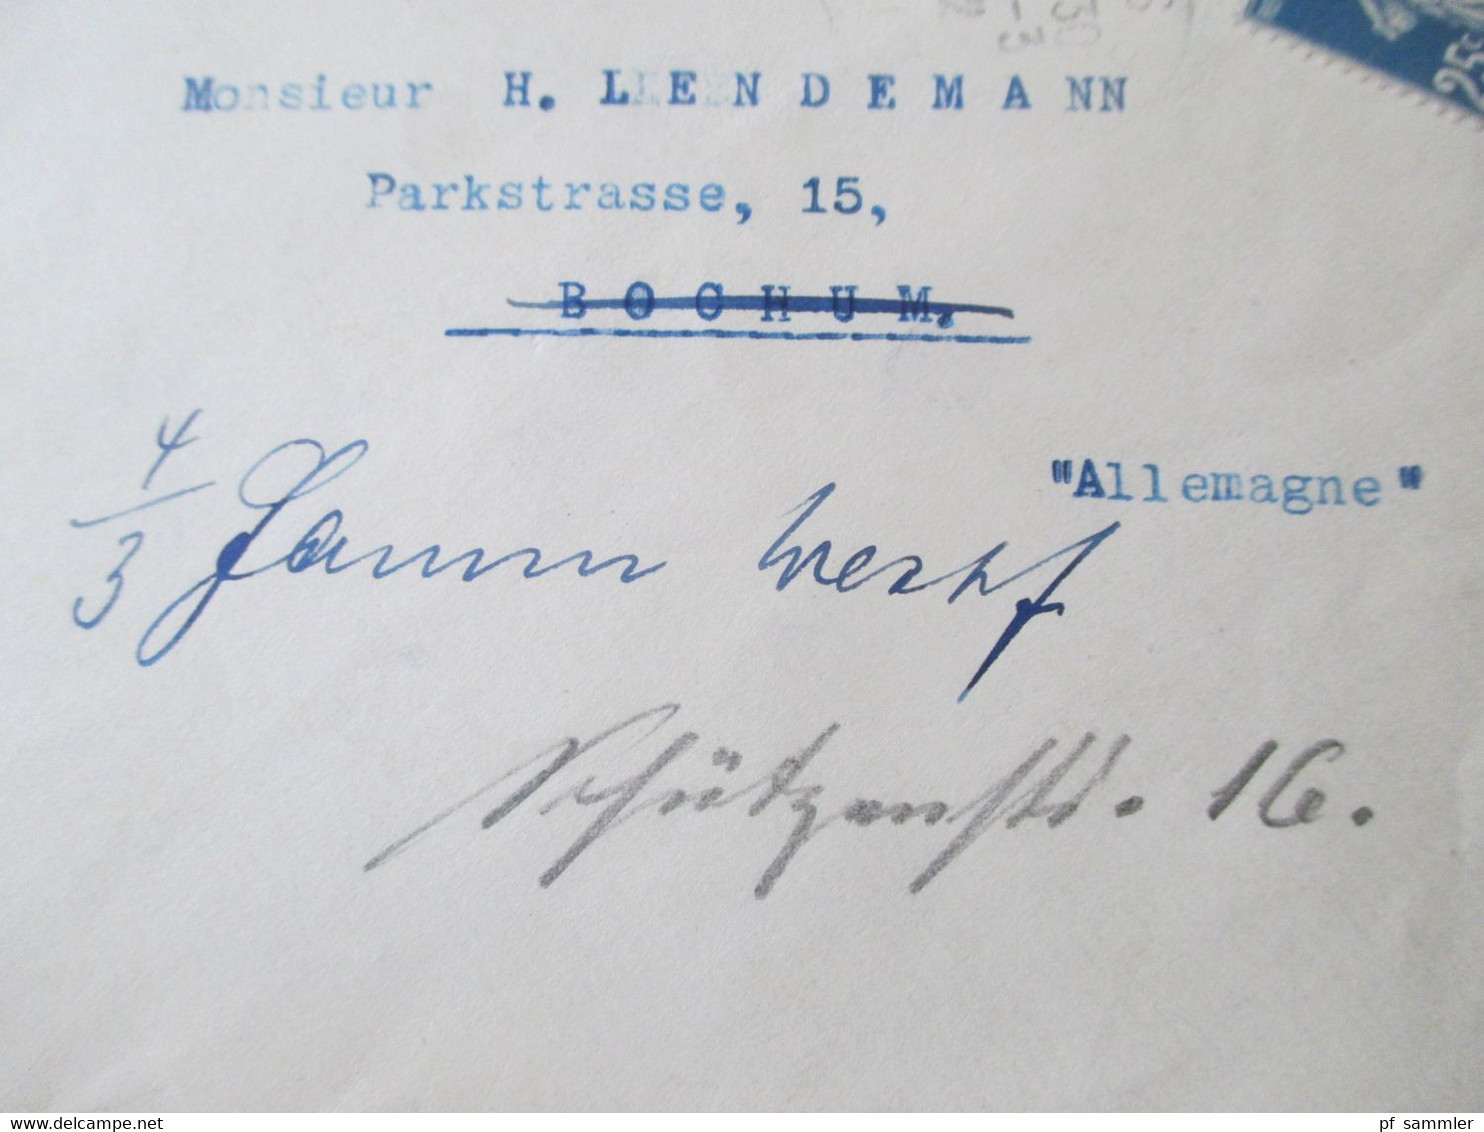 25c
Monsieur H. LENDEMANN
Parkstrasse, 15,
BOCHUM.
"Allemagne"
4/3 Hamm Westf
Schützenstr. 16.
www.delcampe.net
pf sammler